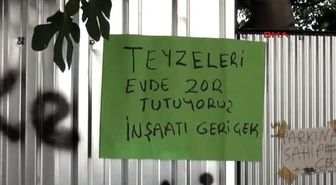 TEYZELERİ
EVDE ZOR
TUTUYORUZ
İNŞAATI GERİ ÇEK
PARKIMA
SAHİP